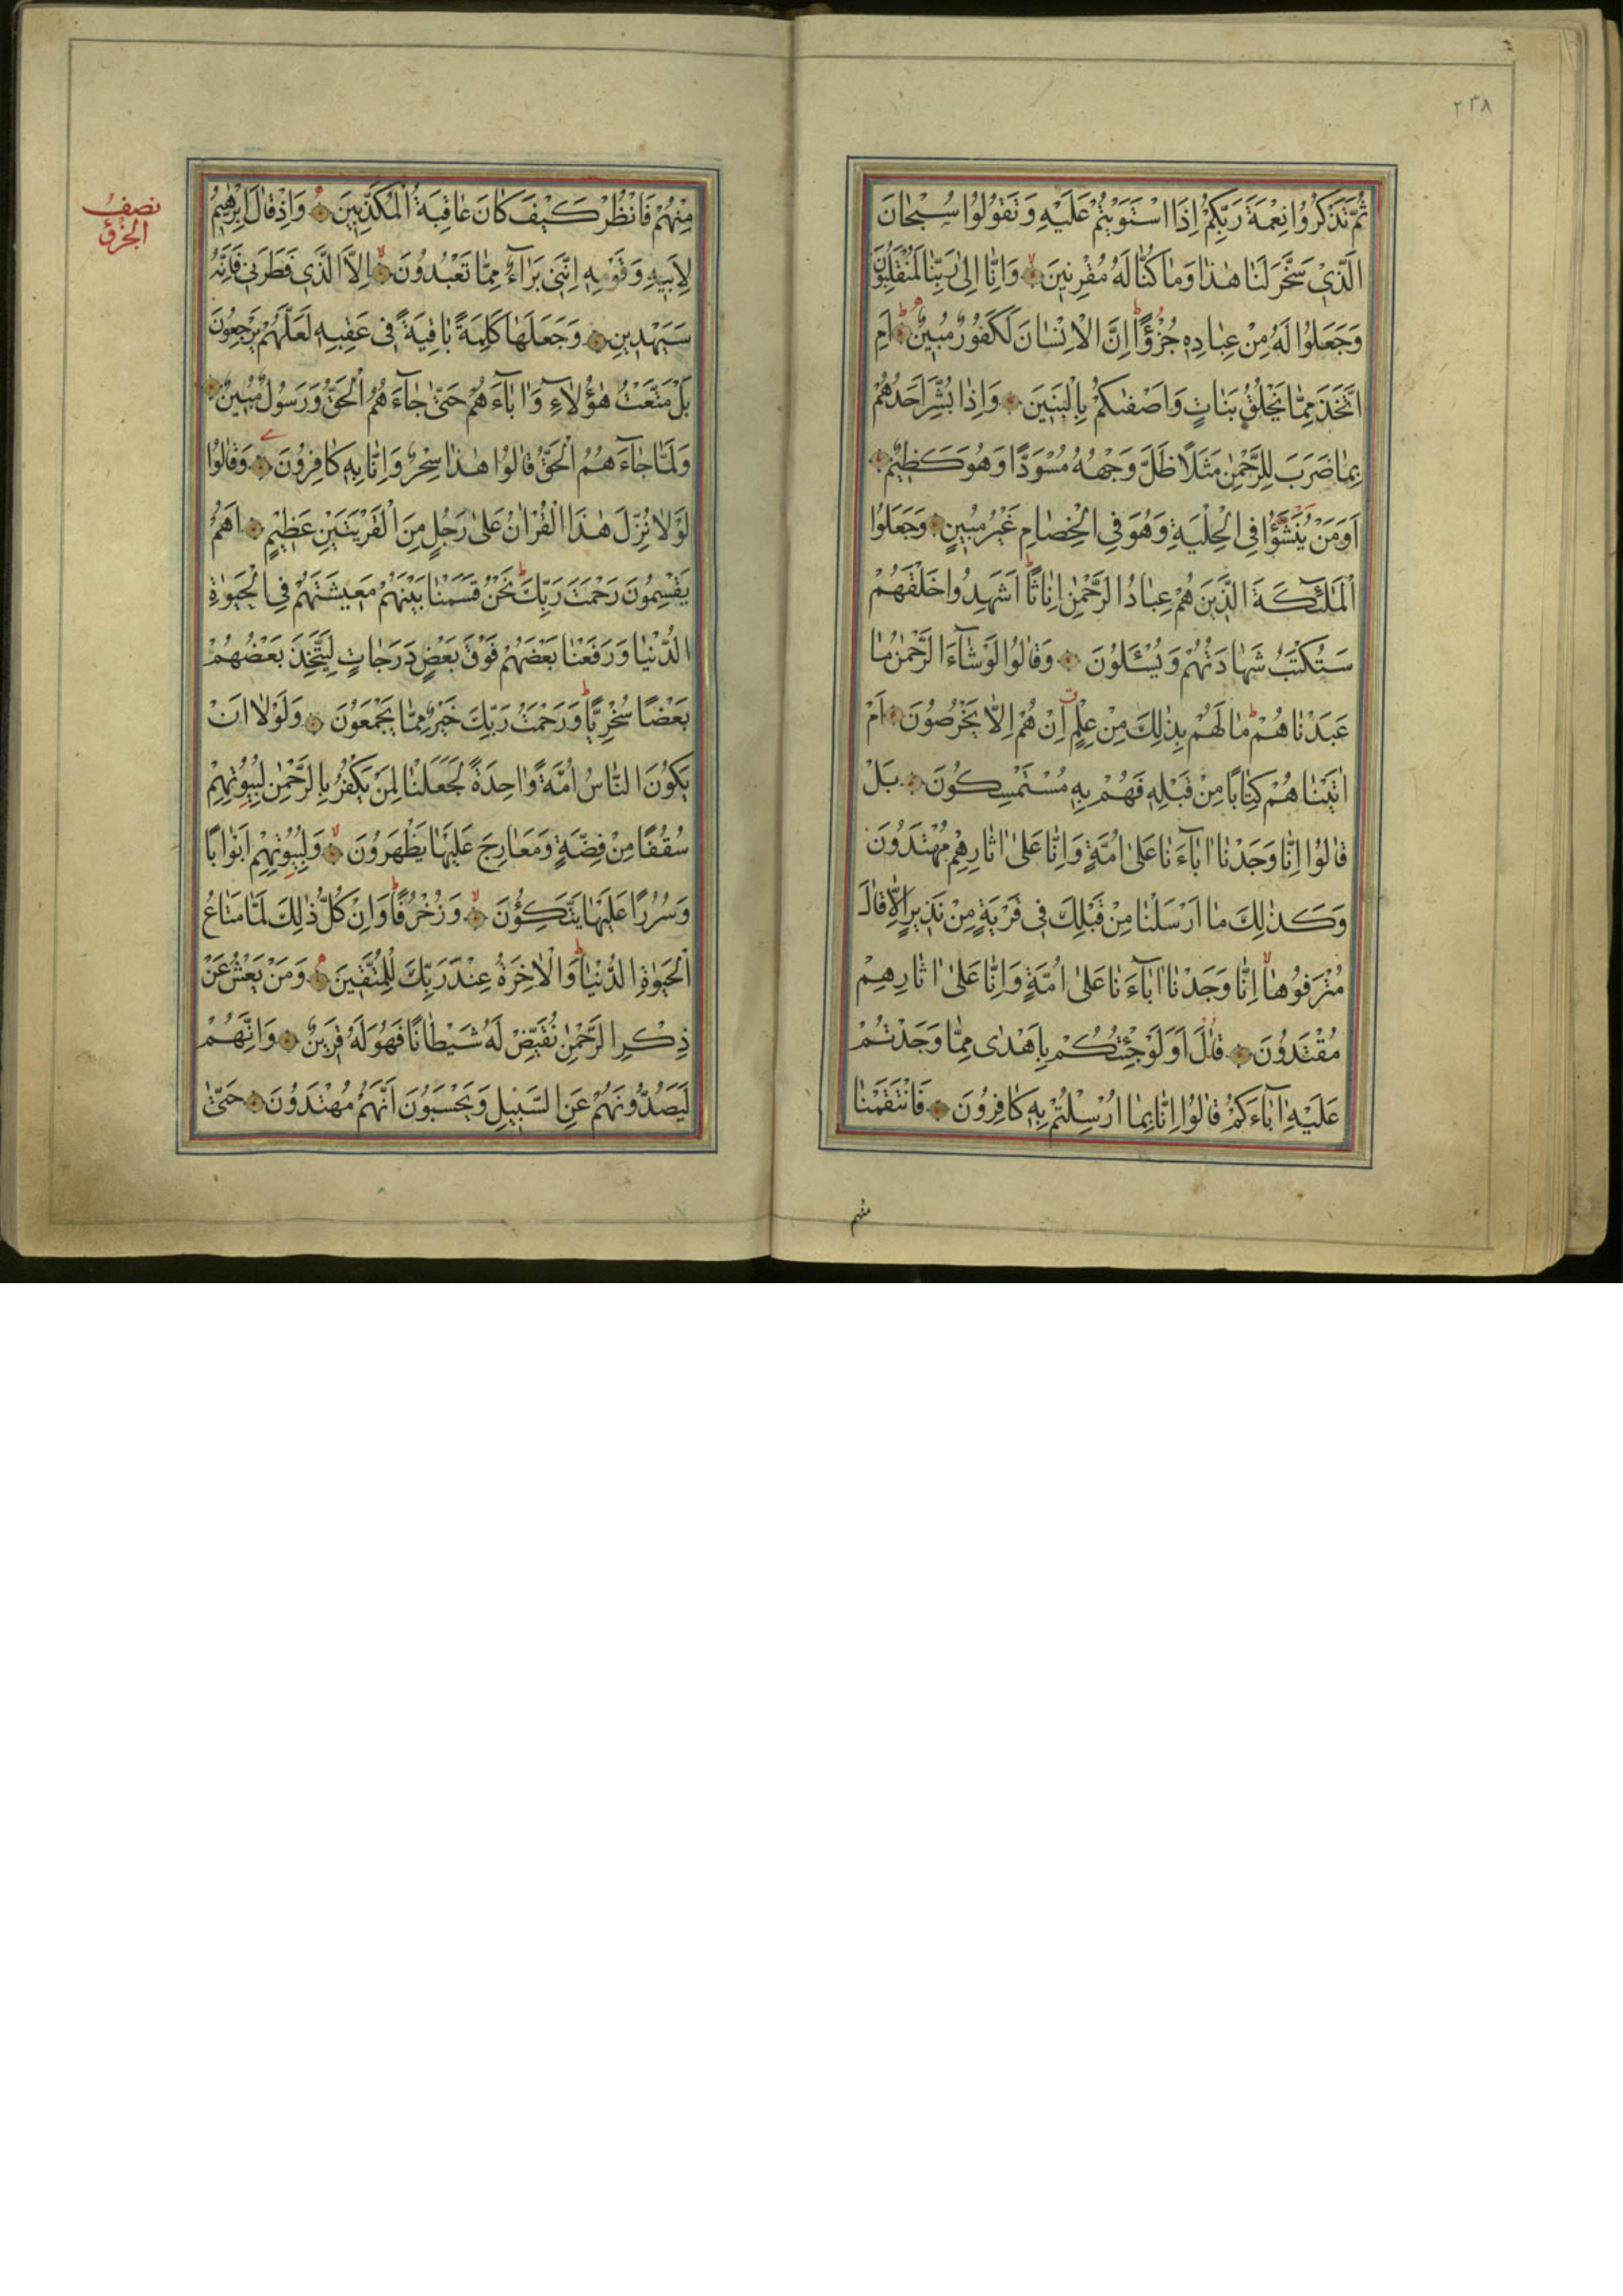 ٢٣٨
ثُمَّ تَذْكُرُوا نِعْمَةَ رَبِّكُمْ اِذَا اسْتَوَيْتُمْ عَلَيْهِ وَتَقُولُوا سُبْحَانَ
الَّذٖى سَخَّرَ لَنَا هٰذَا وَمَا كُنَّا لَهُ مُقْرِنٖينَ وَاِنَّا اِلٰى رَبِّنَا لَمُنْقَلِبُونَ
وَجَعَلُوا لَهُ مِنْ عِبَادِهٖ جُزْؤًا اِنَّ الْاِنْسَانَ لَكَفُورٌ مُبٖينٌ اَمِ
اتَّخَذَ مِمَّا يَخْلُقُ بَنَاتٍ وَاَصْفٰيكُمْ بِالْبَنٖينَ وَاِذَا بُشِّرَ اَحَدُهُمْ
بِمَا ضَرَبَ لِلرَّحْمٰنِ مَثَلًا ظَلَّ وَجْهُهُ مُسْوَدًّا وَهُوَ كَظٖيمٌ
اَوَمَنْ يُنَشَّؤُا فِى الْحِلْيَةِ وَهُوَ فِى الْخِصَامِ غَيْرُ مُبٖينٍ وَجَعَلُوا
الْمَلٰٓئِكَةَ الَّذٖينَ هُمْ عِبَادُ الرَّحْمٰنِ اِنَاثًا اَشَهِدُوا خَلْقَهُمْ
سَتُكْتَبُ شَهَادَتُهُمْ وَيُسْئَلُونَ وَقَالُوا لَوْ شَآءَ الرَّحْمٰنُ مَا
عَبَدْنَاهُمْ مَا لَهُمْ بِذٰلِكَ مِنْ عِلْمٍ اِنْ هُمْ اِلَّا يَخْرُصُونَ اَمْ
اٰتَيْنَاهُمْ كِتَابًا مِنْ قَبْلِهٖ فَهُمْ بِهٖ مُسْتَمْسِكُونَ بَلْ
قَالُوا اِنَّا وَجَدْنَا اٰبَآءَنَا عَلٰى اُمَّةٍ وَاِنَّا عَلٰى اٰثَارِهِمْ مُهْتَدُونَ
وَكَذٰلِكَ مَا اَرْسَلْنَا مِنْ قَبْلِكَ فٖى قَرْيَةٍ مِنْ نَذٖيرٍ اِلَّا قَالَ
مُتْرَفُوهَا اِنَّا وَجَدْنَا اٰبَآءَنَا عَلٰى اُمَّةٍ وَاِنَّا عَلٰى اٰثَارِهِمْ
مُقْتَدُونَ قَالَ اَوَلَوْ جِئْتُكُمْ بِاَهْدٰى مِمَّا وَجَدْتُمْ
عَلَيْهِ اٰبَآءَكُمْ قَالُوا اِنَّا بِمَا اُرْسِلْتُمْ بِهٖ كَافِرُونَ فَانْتَقَمْنَا
منهم
نصف
الجزؤ
مِنْهُمْ فَانْظُرْ كَيْفَ كَانَ عَاقِبَةُ الْمُكَذِّبٖينَ وَاِذْ قَالَ اِبْرٰهٖيمُ
لِاَبٖيهِ وَقَوْمِهٖ اِنَّنٖى بَرَآءٌ مِمَّا تَعْبُدُونَ اِلَّا الَّذٖى فَطَرَنٖى فَاِنَّهُ
سَيَهْدٖينِ وَجَعَلَهَا كَلِمَةً بَاقِيَةً فٖى عَقِبِهٖ لَعَلَّهُمْ يَرْجِعُونَ
بَلْ مَتَّعْتُ هٰٓؤُلَآءِ وَاٰبَآءَهُمْ حَتّٰى جَآءَهُمُ الْحَقُّ وَرَسُولٌ مُبٖينٌ
وَلَمَّا جَآءَهُمُ الْحَقُّ قَالُوا هٰذَا سِحْرٌ وَاِنَّا بِهٖ كَافِرُونَ وَقَالُوا
لَوْلَا نُزِّلَ هٰذَا الْقُرْاٰنُ عَلٰى رَجُلٍ مِنَ الْقَرْيَتَيْنِ عَظٖيمٍ اَهُمْ
يَقْسِمُونَ رَحْمَتَ رَبِّكَ نَحْنُ قَسَمْنَا بَيْنَهُمْ مَعٖيشَتَهُمْ فِى الْحَيٰوةِ
الدُّنْيَا وَرَفَعْنَا بَعْضَهُمْ فَوْقَ بَعْضٍ دَرَجَاتٍ لِيَتَّخِذَ بَعْضُهُمْ
بَعْضًا سُخْرِيًّا وَرَحْمَتُ رَبِّكَ خَيْرٌ مِمَّا يَجْمَعُونَ وَلَوْلَا اَنْ
يَكُونَ النَّاسُ اُمَّةً وَاحِدَةً لَجَعَلْنَا لِمَنْ يَكْفُرُ بِالرَّحْمٰنِ لِبُيُوتِهِمْ
سُقُفًا مِنْ فِضَّةٍ وَمَعَارِجَ عَلَيْهَا يَظْهَرُونَ وَلِبُيُوتِهِمْ اَبْوَابًا
وَسُرُرًا عَلَيْهَا يَتَّكِؤُنَ وَزُخْرُفًا وَاِنْ كُلُّ ذٰلِكَ لَمَّا مَتَاعُ
الْحَيٰوةِ الدُّنْيَا وَالْاٰخِرَةُ عِنْدَ رَبِّكَ لِلْمُتَّقٖينَ وَمَنْ يَعْشُ عَنْ
ذِكْرِ الرَّحْمٰنِ نُقَيِّضْ لَهُ شَيْطَانًا فَهُوَ لَهُ قَرٖينٌ وَاِنَّهُمْ
لَيَصُدُّونَهُمْ عَنِ السَّبٖيلِ وَيَحْسَبُونَ اَنَّهُمْ مُهْتَدُونَ حَتّٰى